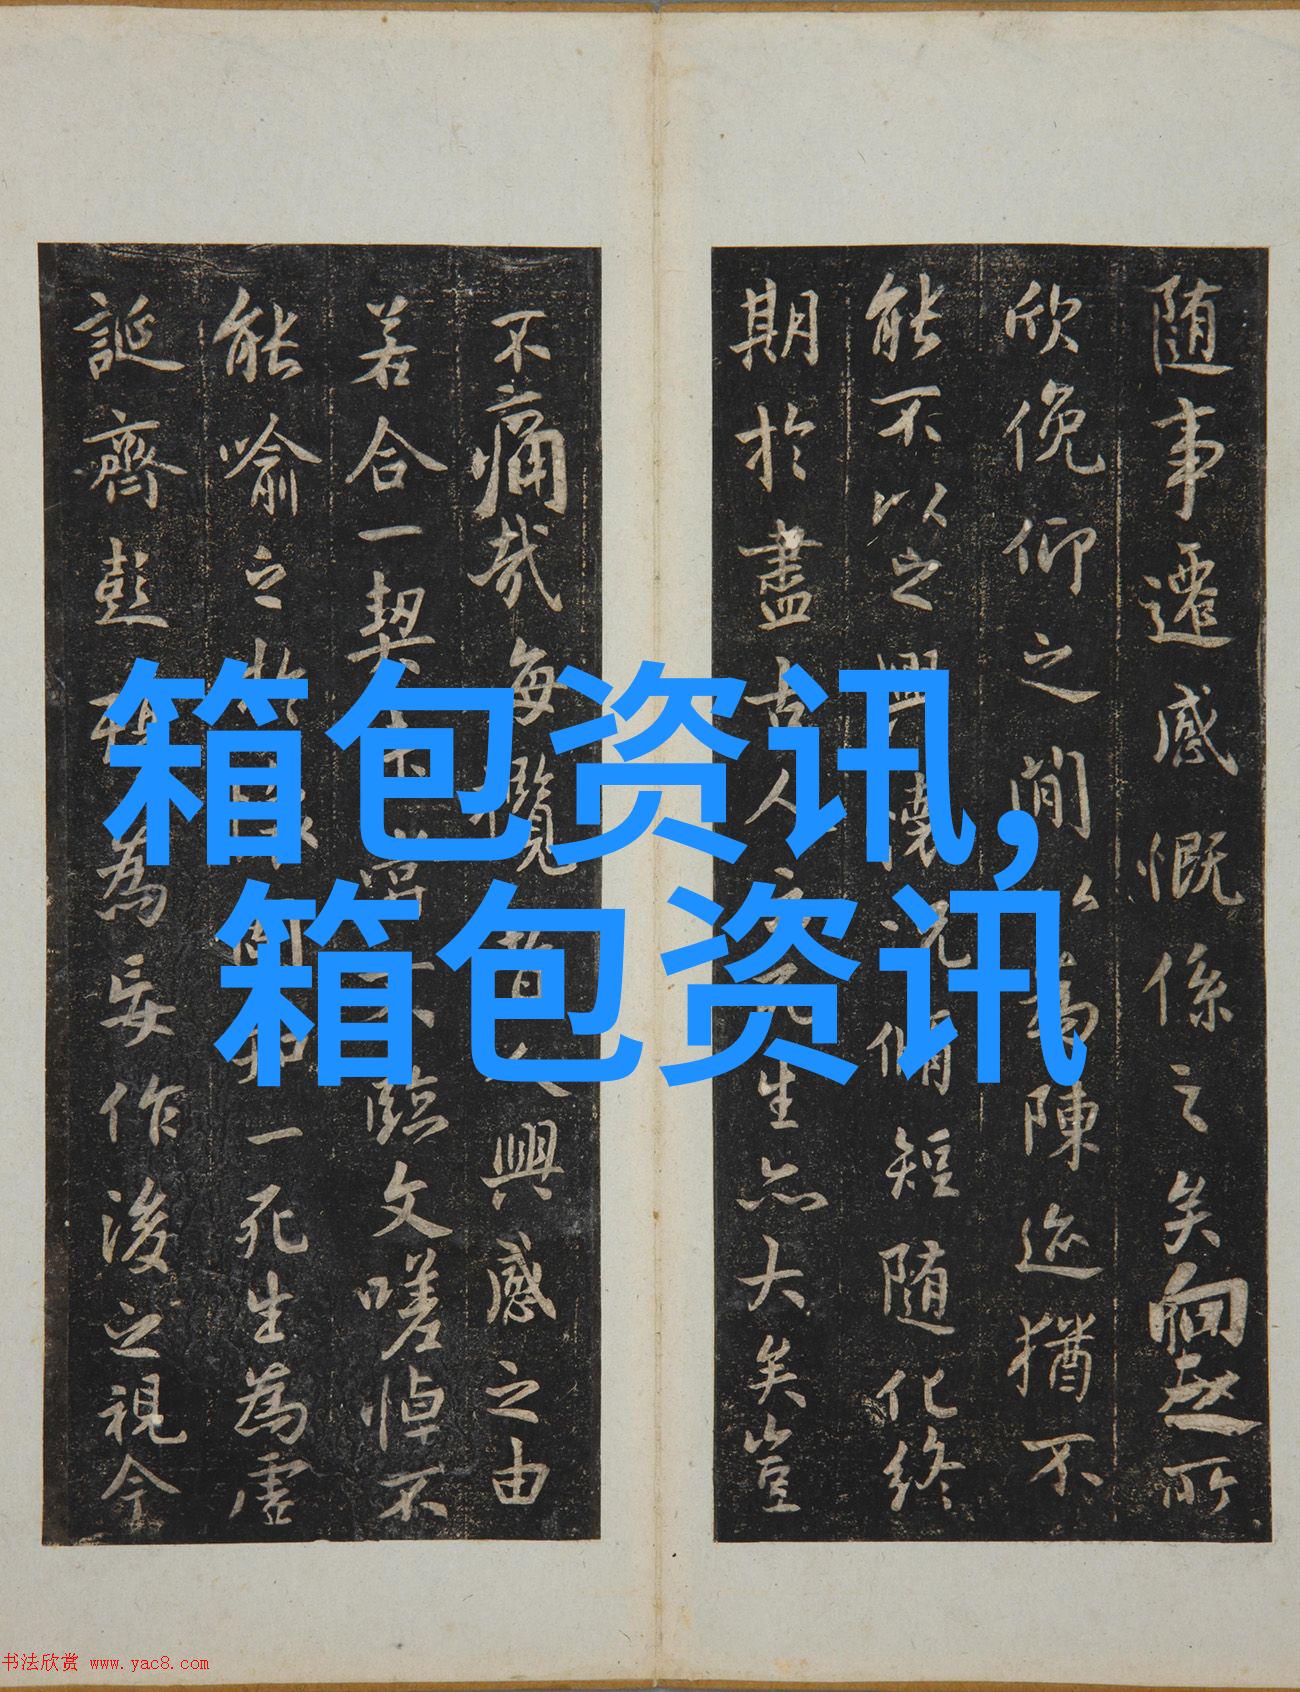 随事遷感慨係之矣向之所
欣俛仰之閒以為陳迹猶不
能不以之興懷況脩短随化終
期於盡古人云死生亦大矣豈
不痛哉每攬昔人興感之由
若合一契未嘗不臨文嗟悼不
能喻之於懷固知一死生為虛
誕齊彭殤為妄作後之視今
箱包资讯,
箱包资讯
书法欣赏 www.yac8.com